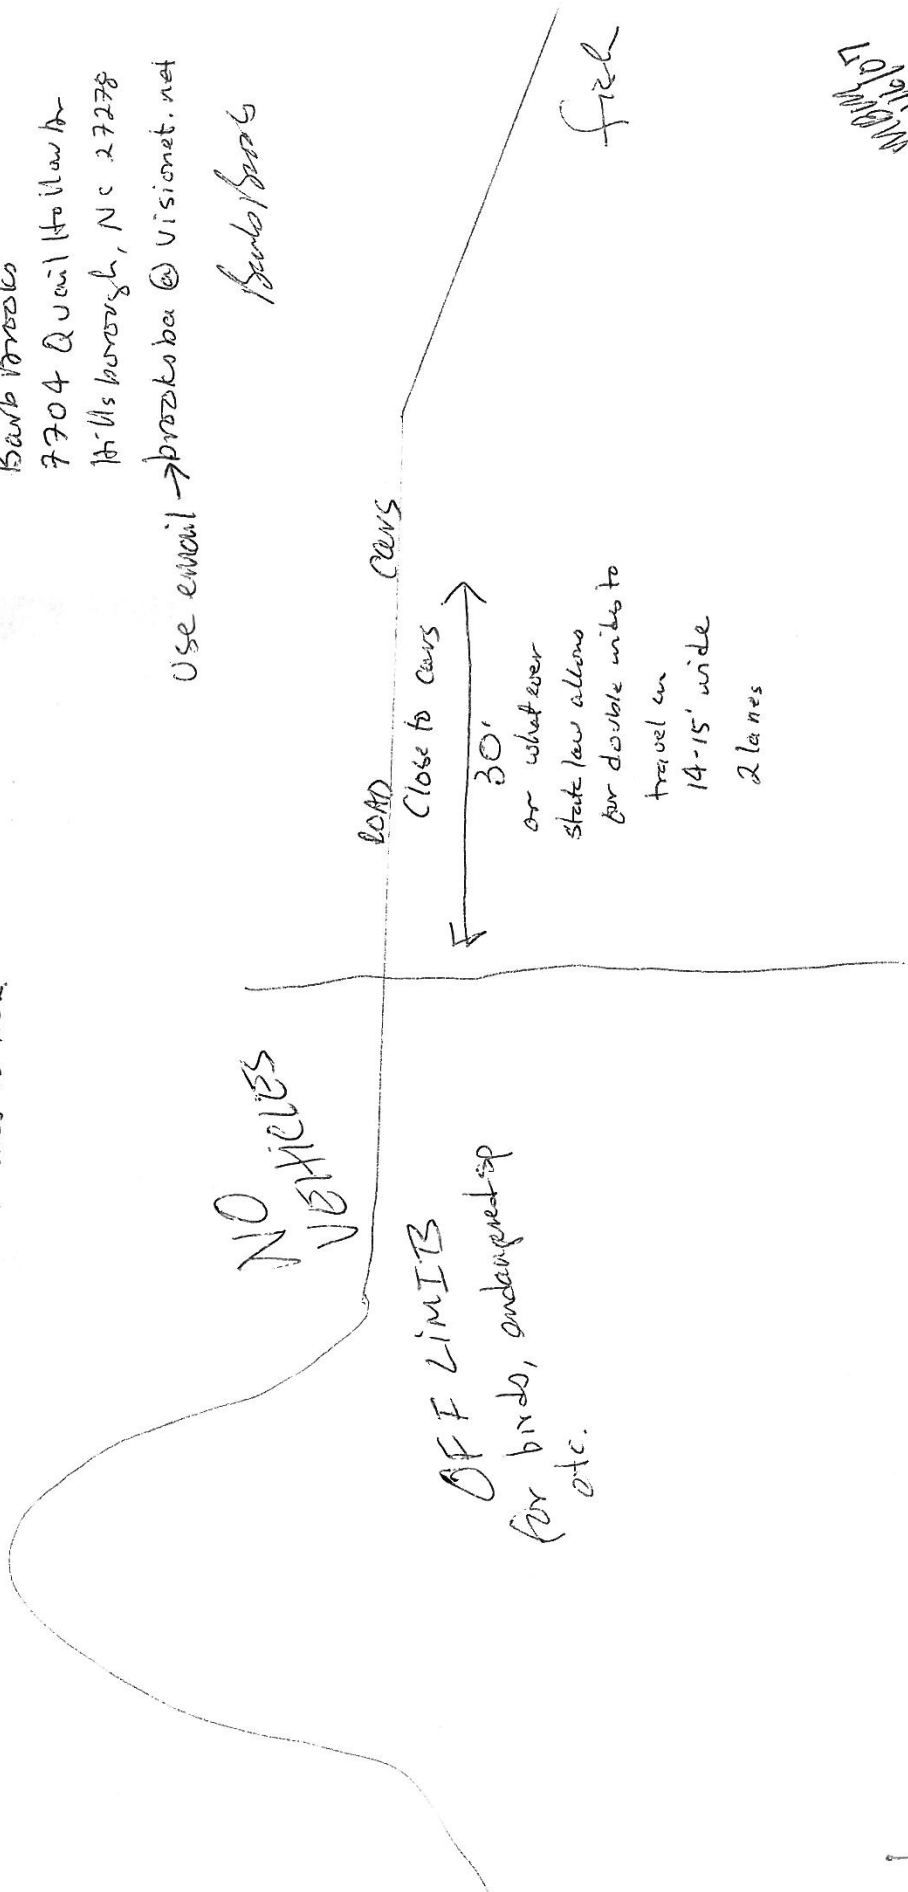 Barb Brooks
7704 Quail Hollow Dr
Hillsborough, NC 27278
Use email → brooksba @ visionet.net
Barb Brooks
NO
VEHICLES
ROAD
cars
Close to cars
30'
or whatever
State law allows
for double wides to
travel on
14-15' wide
2 lanes
OFF LIMITS
for birds, endangered sp
etc.
fish